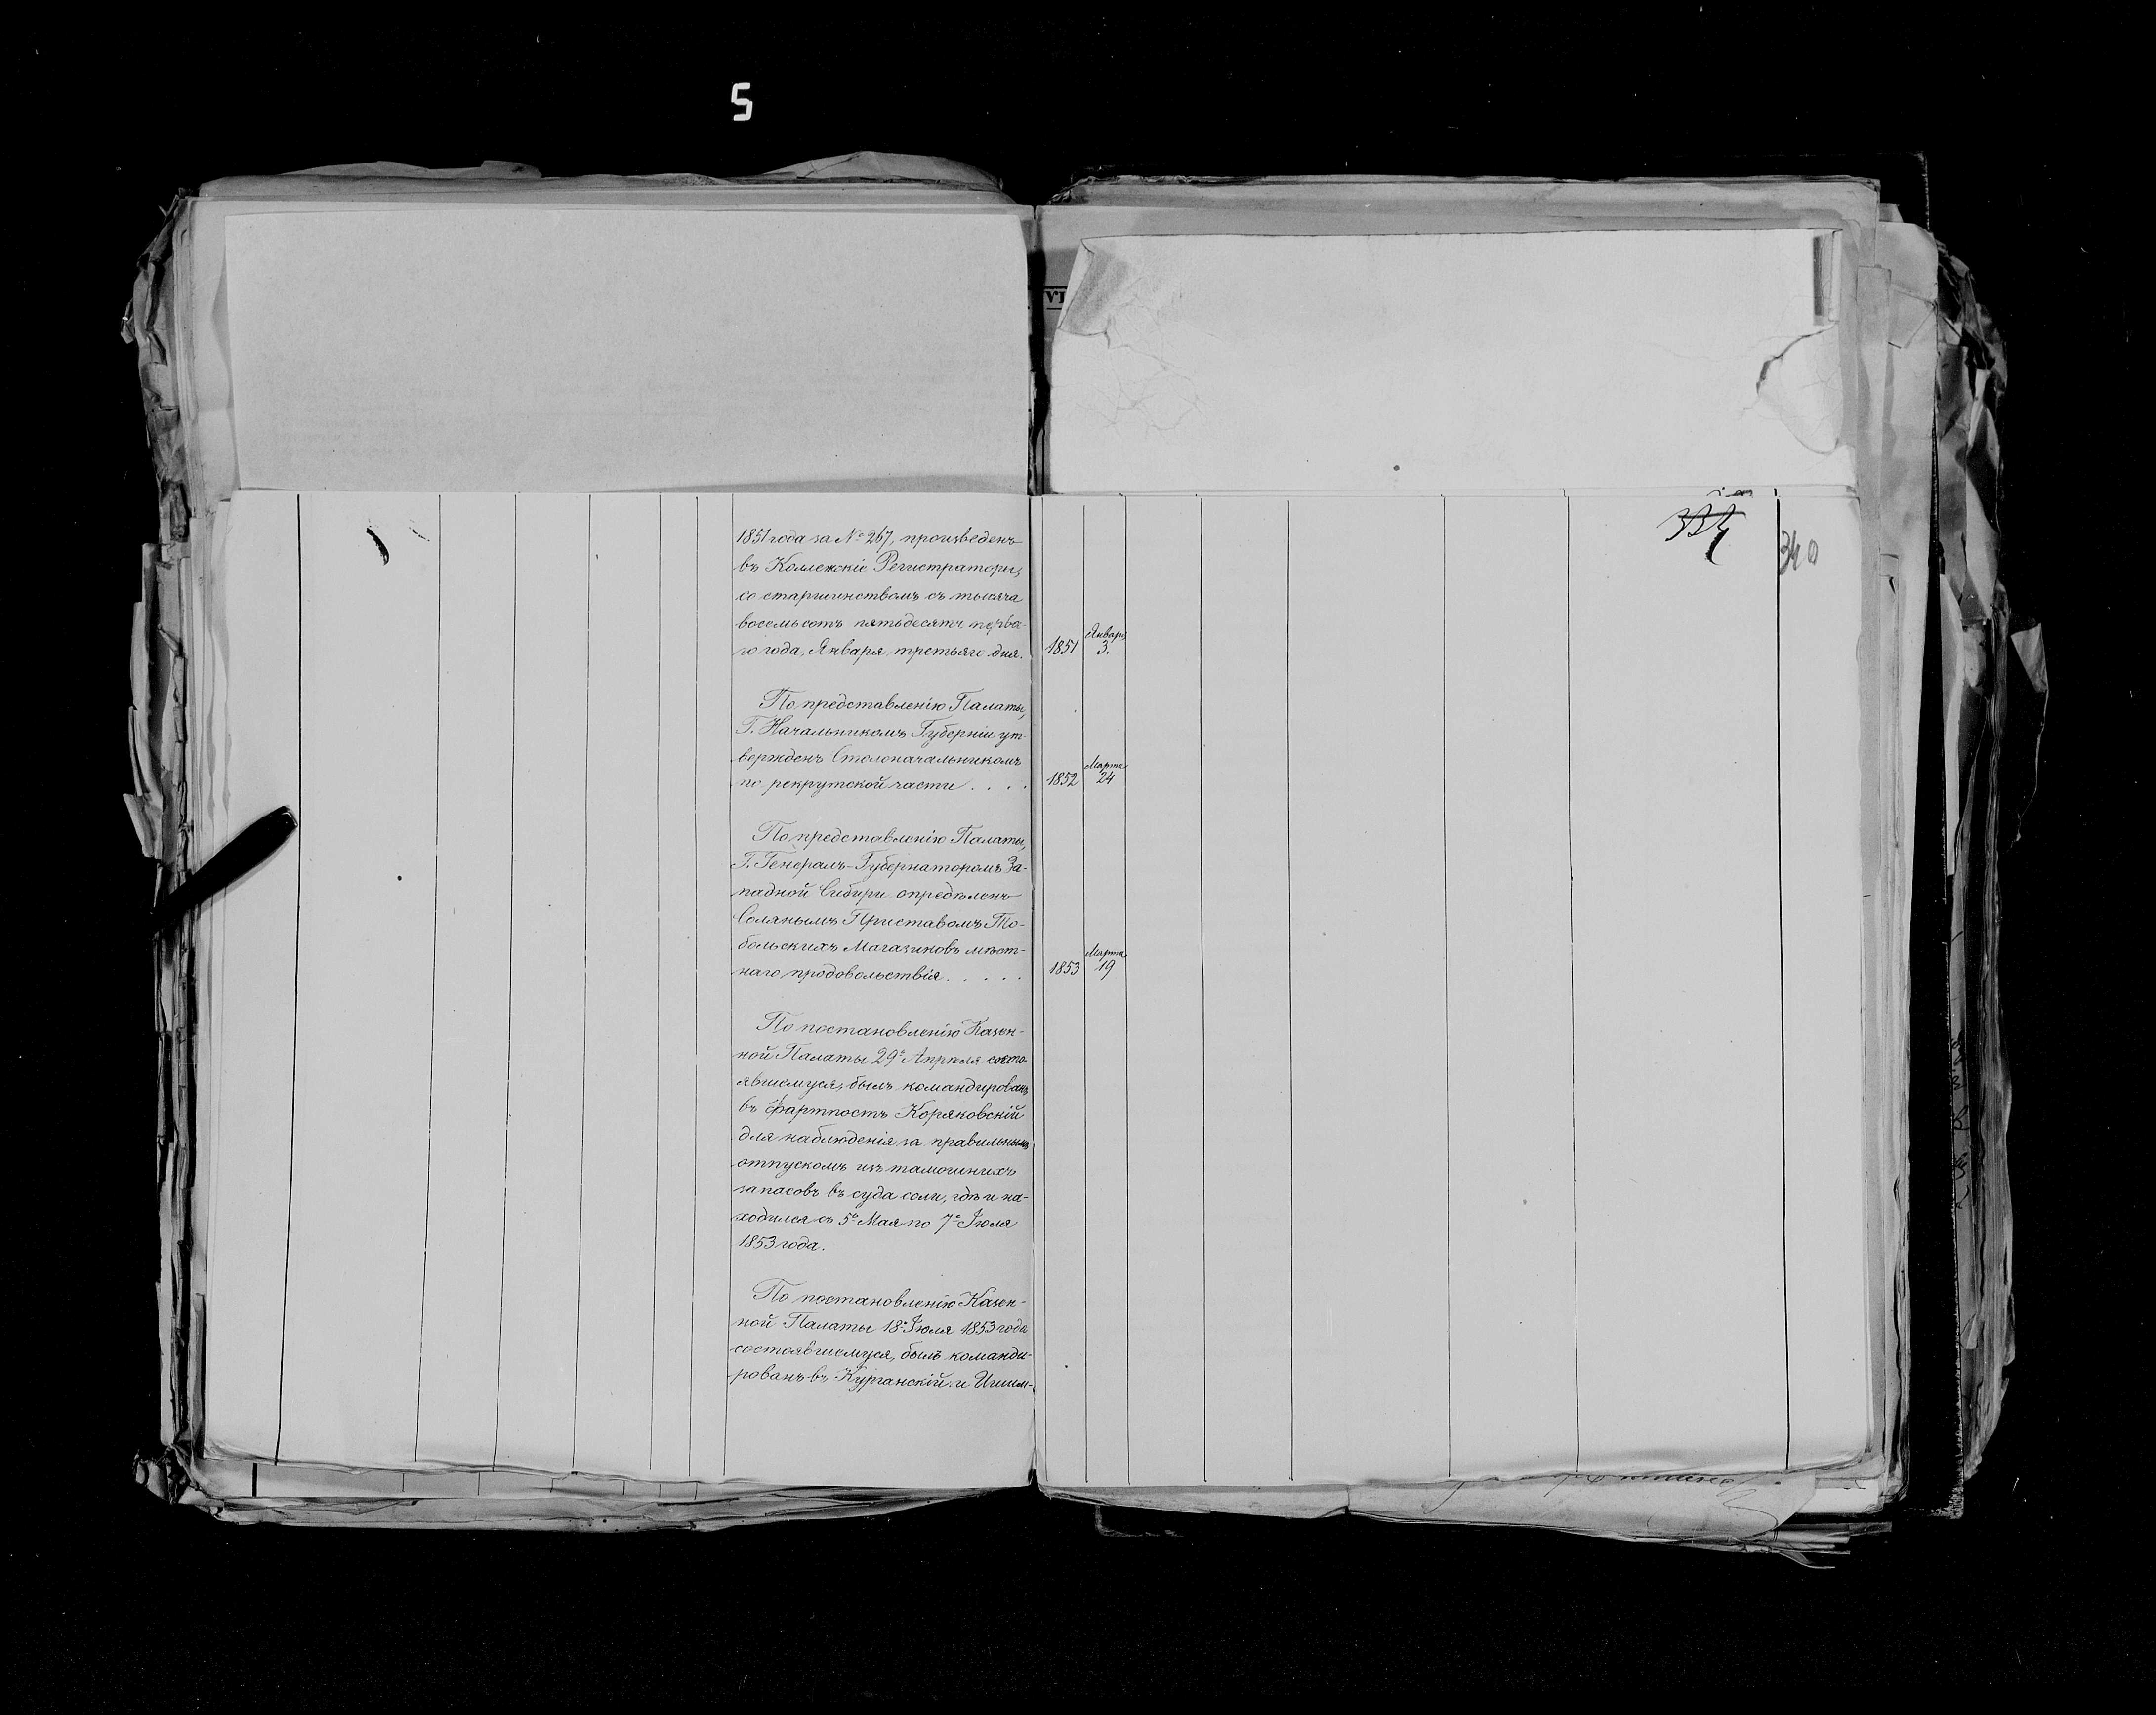 5
340
1851 года за № 267, произведенъ
въ Коллежскіе Регистраторы,
со старшинствомъ съ тысяча
восемьсотъ пятьдесятъ перва-
го года, Января третьяго дня. 1851 Января 3.
По представленію Палаты,
Г. Начальникомъ Губерніи ут-
вержденъ Столоначальникомъ
по рекрутской части . . . . 1852 Марта 24
По представленію Палаты,
Г. Генералъ-Губернаторомъ За-
падной Сибири опредѣленъ
Солянымъ Приставомъ То-
больскихъ Магазиновъ мѣст-
наго продовольствія . . . . . 1853 Марта 19
По постановленію Казен-
ной Палаты 29º Апрѣля состо-
явшемуся, былъ командированъ
въ фортпостъ Коряковскій
для наблюденія за правильнымъ
отпускомъ изъ тамошнихъ
запасовъ въ суда соли, гдѣ и на-
ходился съ 5º Мая по 7º Іюля
1853 года.
По постановленію Казен-
ной Палаты 18º Іюля 1853 года
состоявшемуся, былъ команди-
рованъ въ Курганскій и Ишим-